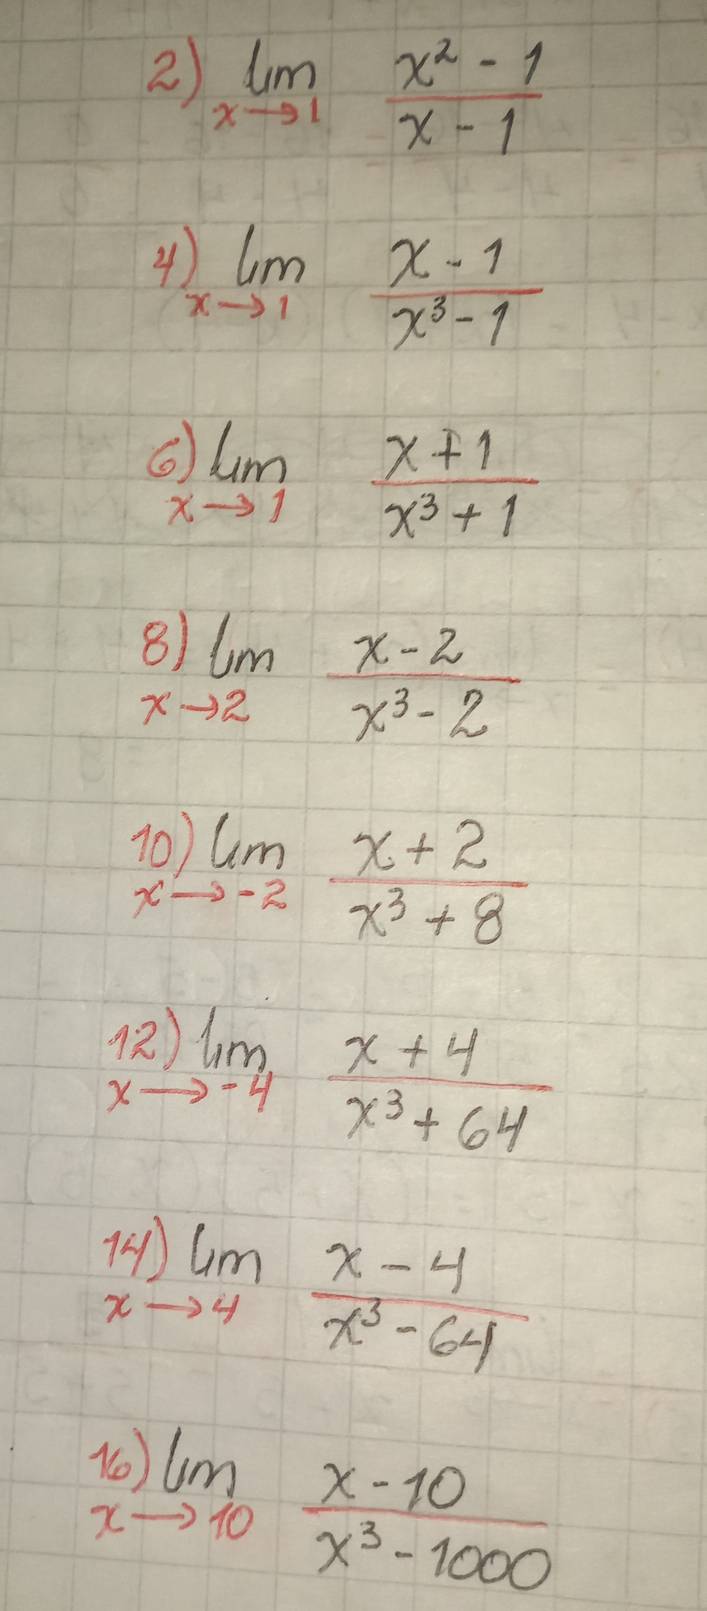 2) lim x²-1
x→1 x-1
4) lim x-1
x→1 x³-1
6) lim x+1
x→1 x³+1
8) lim x-2
x→2 x³-2
10) lim x+2
x→-2 x³+8
12) lim x+4
x→-4 x³+64
14) lim x-4
x→4 x³-64
16) lim x-10
x→10 x³-1000